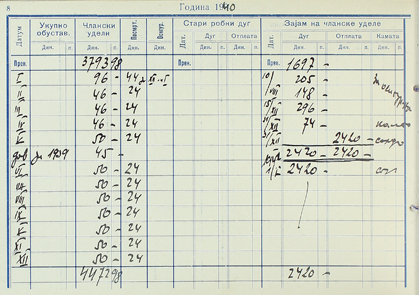 8 Година 1940
Датум Укупно обустав. Члански удели Поспмт. Осигур. Стари робни дуг Зајам на чланске уделе
Дин. п. Дин. п. Дин. Дин. Дат. Дуг Отплата Дат. Дуг Отплата Камата
Дин. п. Дин. п. Дин. п. Дин. п. Дин. п.
Прен. 3793 98 Прен. Прен. 1697 –
I 96 – 44 205 –
II 46 – 24 148 –
III 46 – 24 296 –
IV 46 – 24 74 –
V 50 – 24 2420 –
за 1939 45 – 2420 – 2420 –
VI 50 – 24 2420 –
VII 50 – 24
VIII 50 – 24
IX 50 – 24
X 50 – 24
XI 50 – 24
XII 50 – 24
4472 98 2420 –